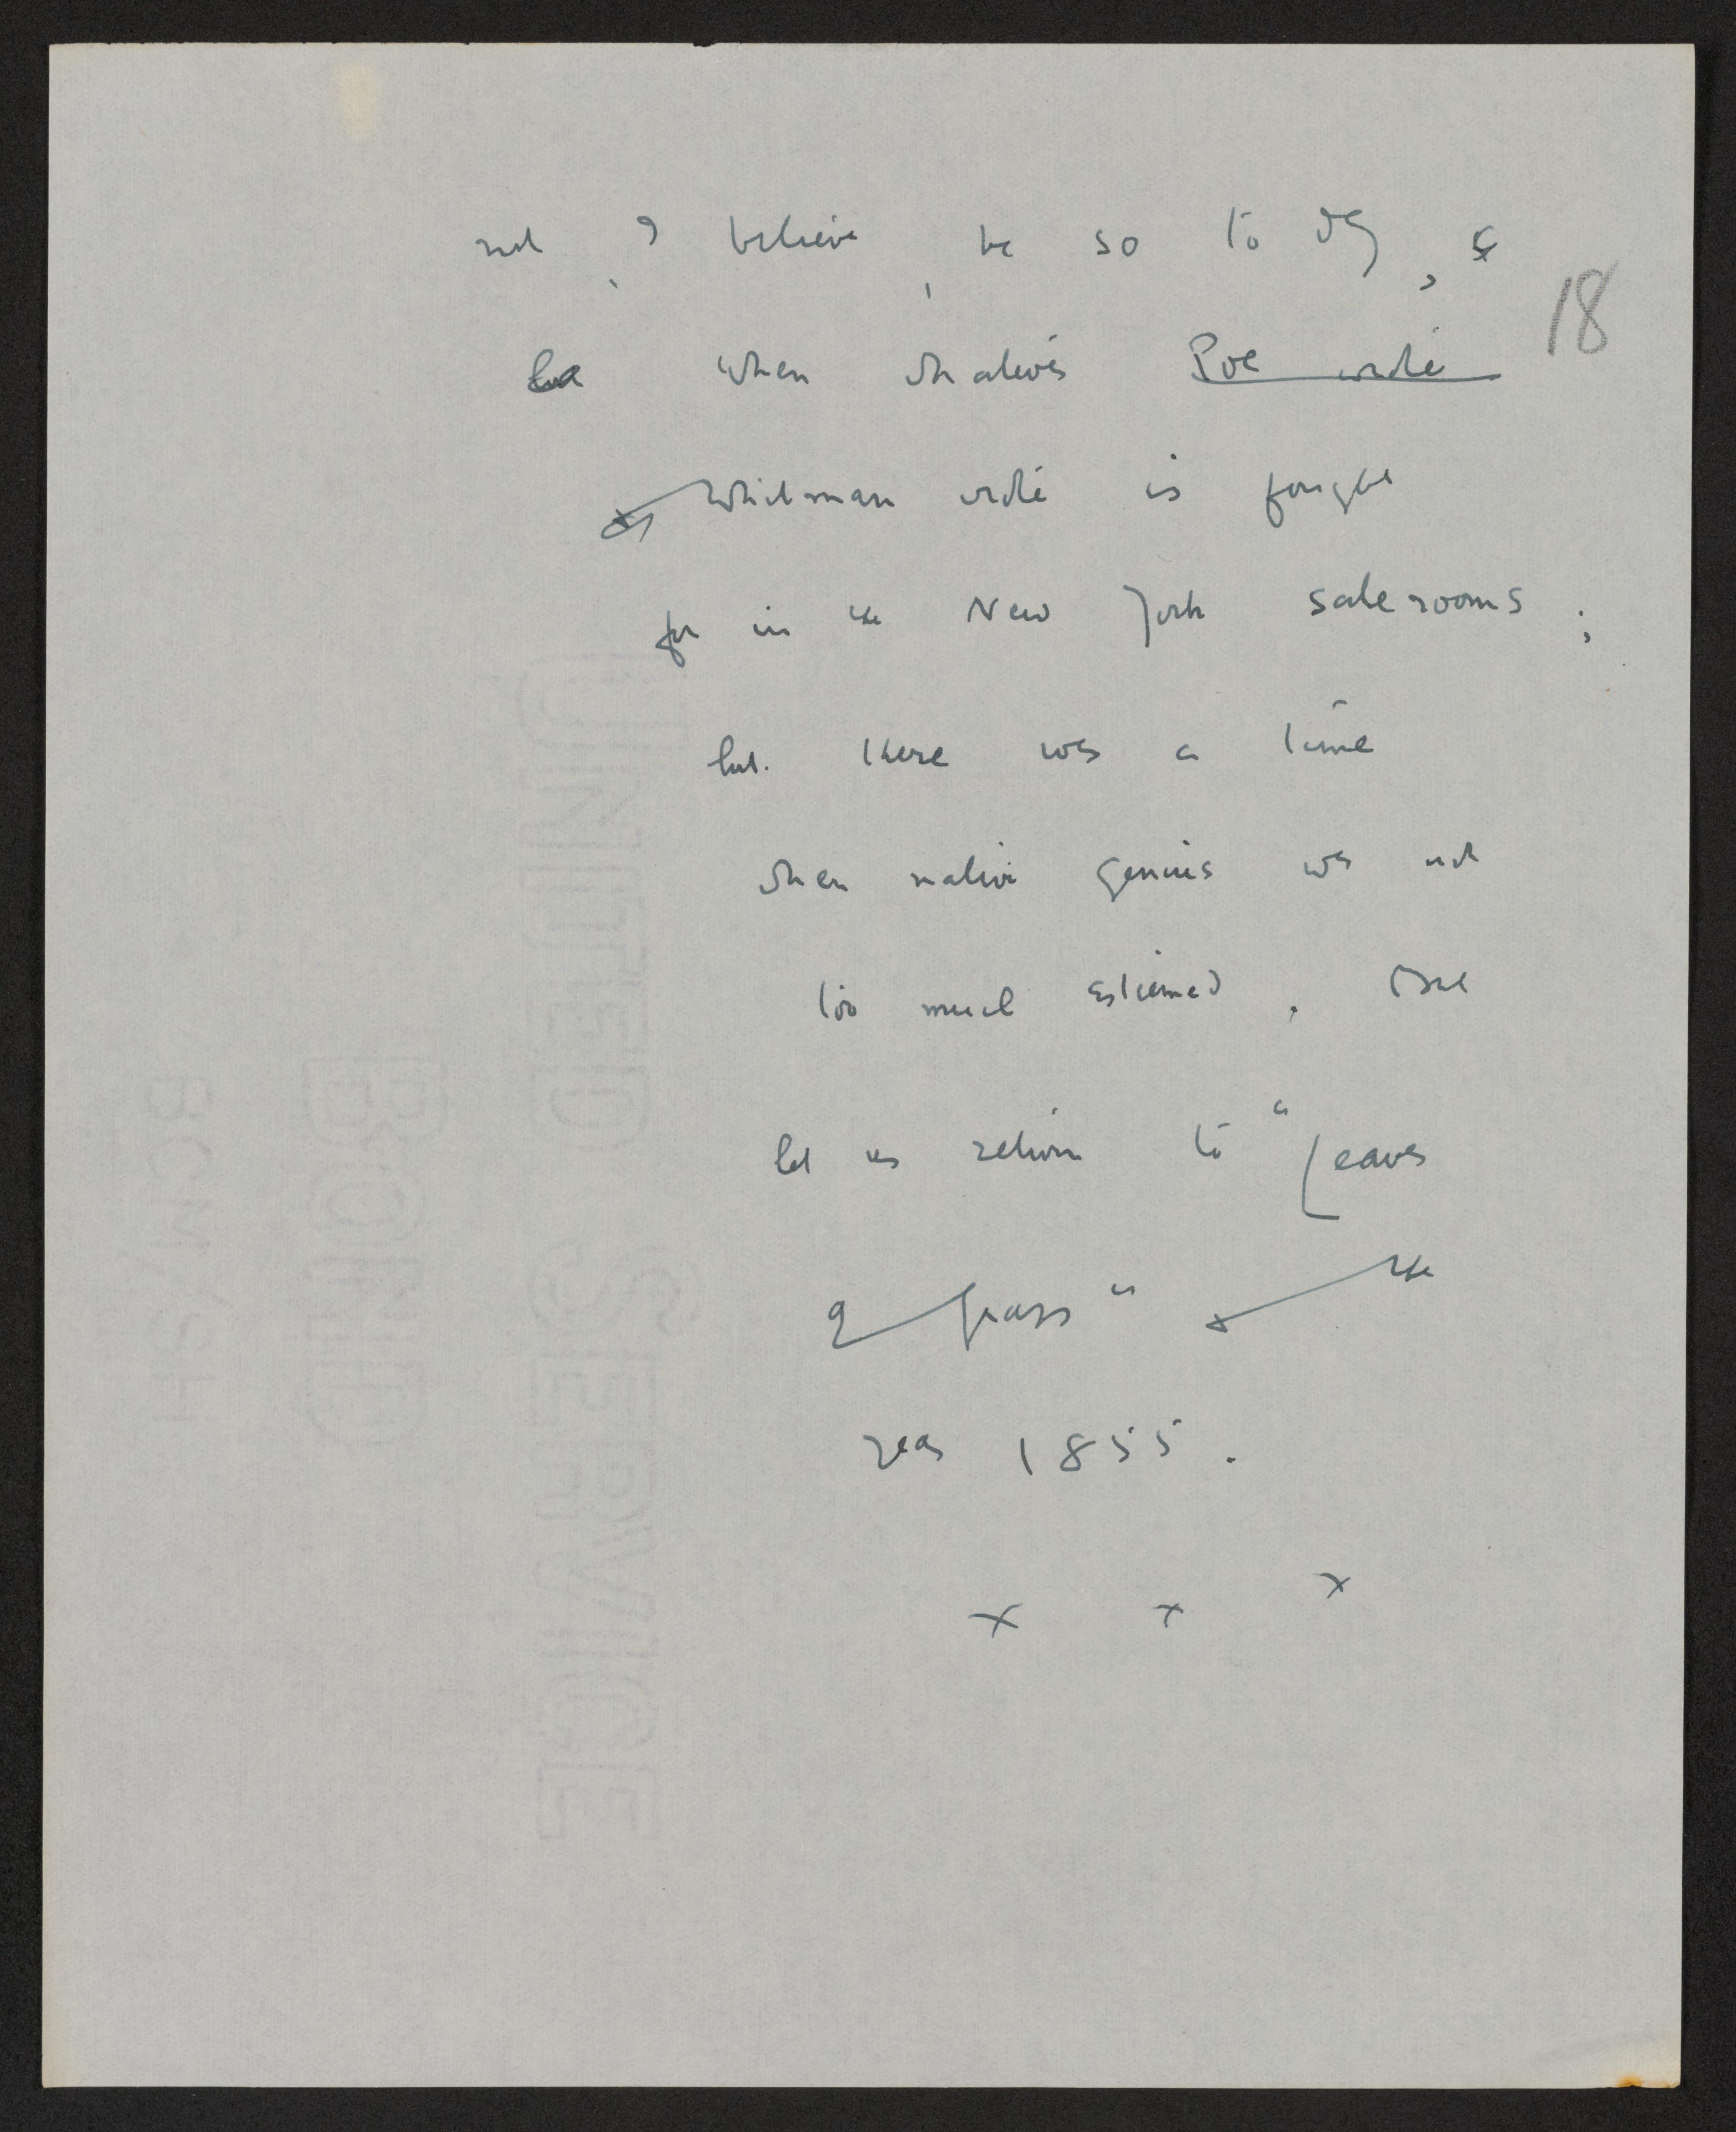 not, I believe, be so to day, &
18
when whatever Poe wrote
or Whitman wrote is fought
for in the New York salerooms;
but there was a time
when native genius was not
too much esteemed. But
let us return to "Leaves
of Grass" & the
year 1855.
x x x
UNITED SERVICE
BOND